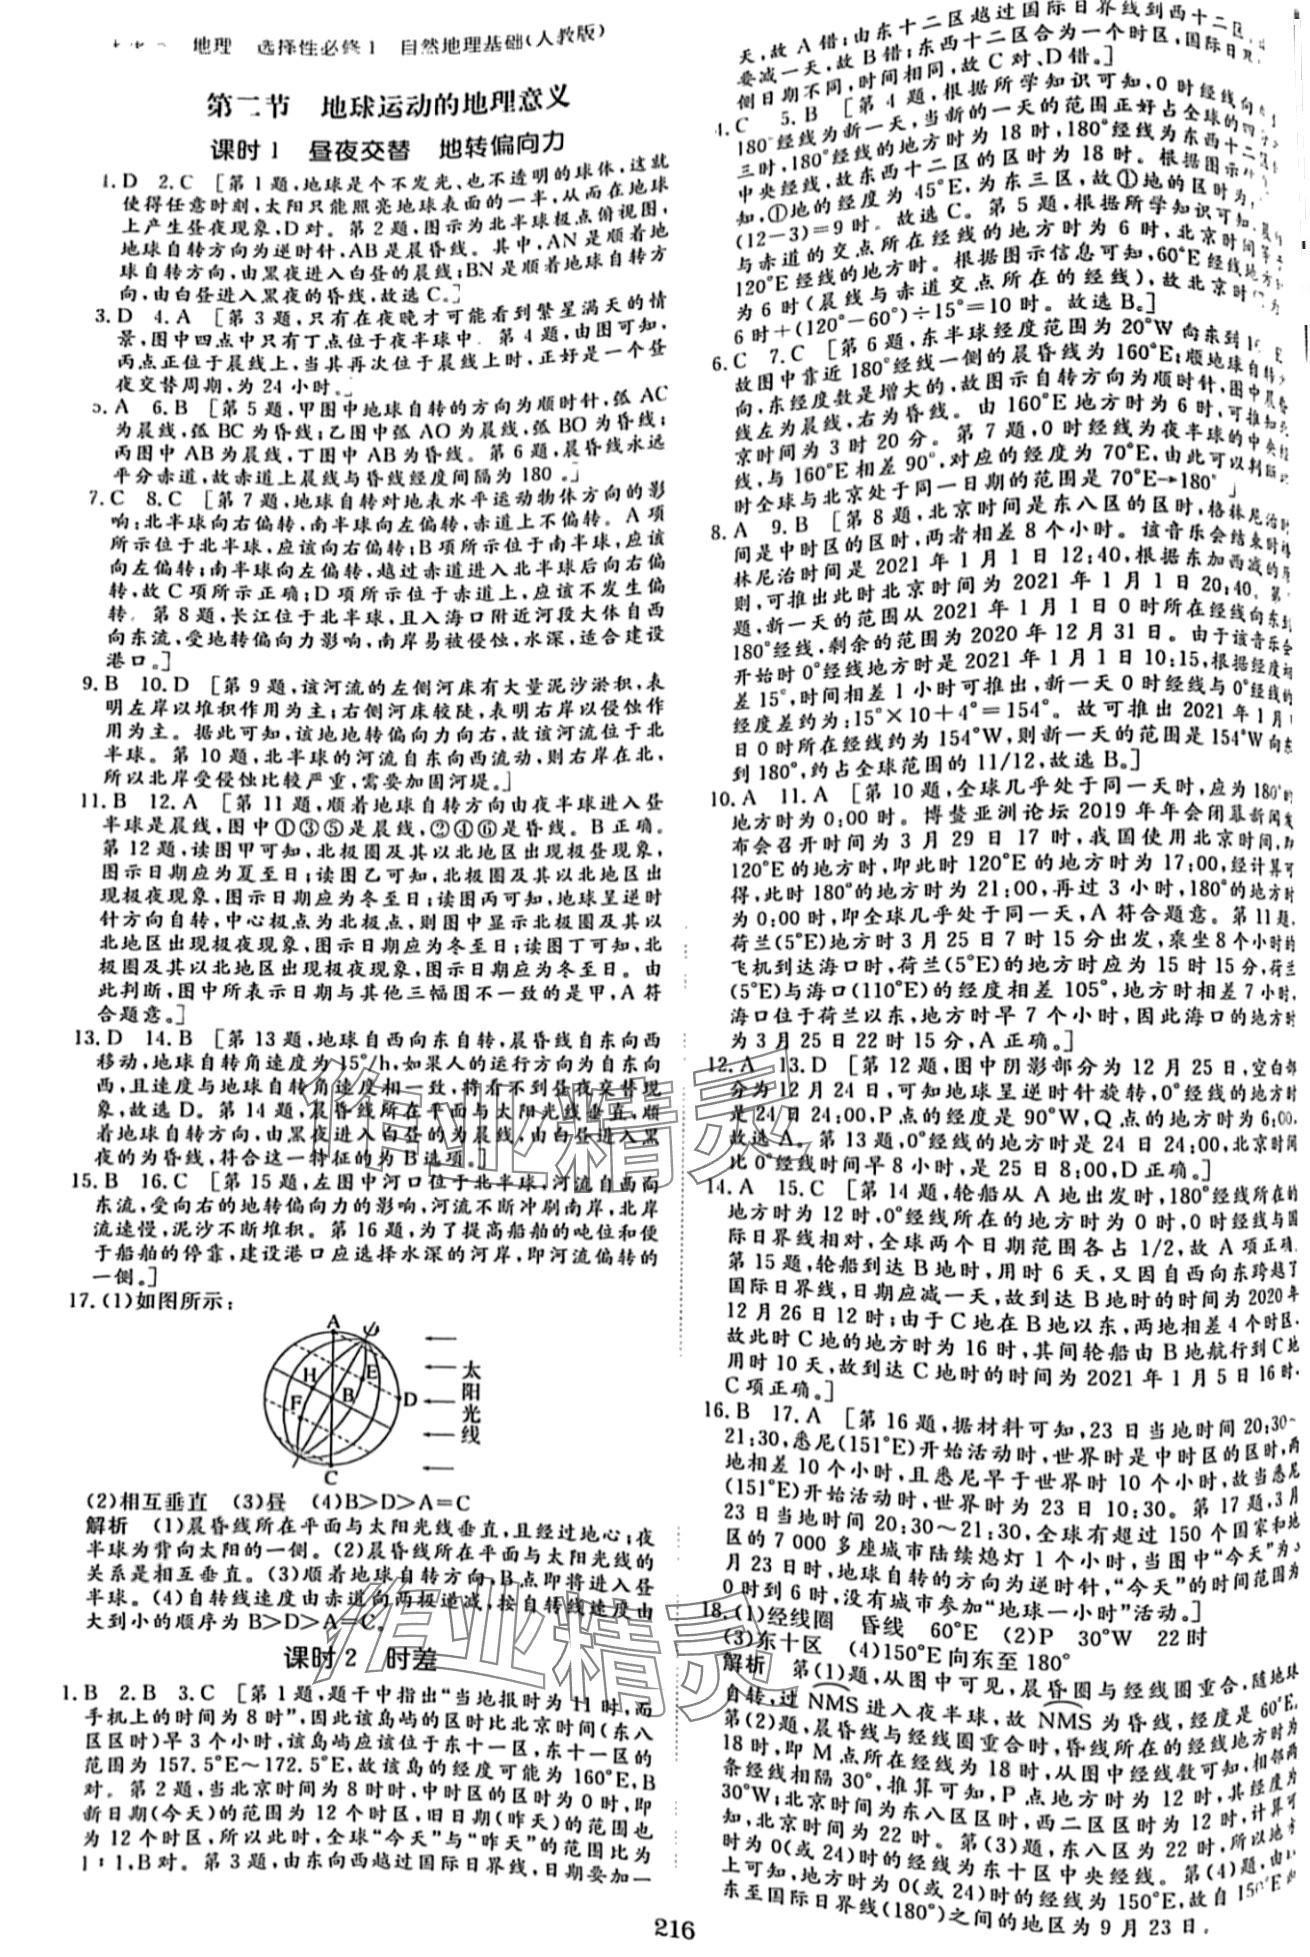 地理 选择性必修1 自然地理基础(人教版)
第二节 地球运动的地理意义
课时1 昼夜交替 地转偏向力
1.D 2.C [第1题,地球是个不发光、也不透明的球体,这就
使得任意时刻,太阳只能照亮地球表面的一半,从而在地球
上产生昼夜现象,D对。第2题,图示为北半球极点俯视图,
地球自转方向为逆时针,AB是晨昏线。其中,AN是顺着地
球自转方向,由黑夜进入白昼的晨线;BN是顺着地球自转方
向,由白昼进入黑夜的昏线,故选C。]
3.D 4.A [第3题,只有在夜晚才可能看到繁星满天的情
景,图中四点中只有丁点位于夜半球中。第4题,由图可知,
丙点正位于晨线上,当其再次位于晨线上时,正好是一个昼
夜交替周期,为24小时。]
5.A 6.B [第5题,甲图中地球自转的方向为顺时针,弧AC
为晨线,弧BC为昏线;乙图中弧AO为晨线,弧BO为昏线;
丙图中AB为晨线,丁图中AB为昏线。第6题,晨昏线永远
平分赤道,故赤道上晨线与昏线经度间隔为180°。]
7.C 8.C [第7题,地球自转对地表水平运动物体方向的影
响:北半球向右偏转,南半球向左偏转,赤道上不偏转。A项
所示位于北半球,应该向右偏转;B项所示位于南半球,应该
向左偏转;南半球向左偏转,越过赤道进入北半球后向右偏
转,故C项所示正确;D项所示位于赤道上,应该不发生偏
转。第8题,长江位于北半球,且入海口附近河段大体自西
向东流,受地转偏向力影响,南岸易被侵蚀,水深,适合建设
港口。]
9.B 10.D [第9题,该河流的左侧河床有大量泥沙淤积,表
明左岸以堆积作用为主;右侧河床较陡,表明右岸以侵蚀作
用为主。据此可知,该地地转偏向力向右,故该河流位于北
半球。第10题,北半球的河流自东向西流动,则右岸在北,
所以北岸受侵蚀比较严重,需要加固河堤。]
11.B 12.A [第11题,顺着地球自转方向由夜半球进入昼
半球是晨线,图中①③⑤是晨线,②④⑥是昏线。B正确。
第12题,读图甲可知,北极圈及其以北地区出现极昼现象,
图示日期应为夏至日;读图乙可知,北极圈及其以北地区出
现极夜现象,图示日期应为冬至日;读图丙可知,地球呈逆时
针方向自转,中心极点为北极点,则图中显示北极圈及其以
北地区出现极夜现象,图示日期应为冬至日;读图丁可知,北
极圈及其以北地区出现极夜现象,图示日期应为冬至日。由
此判断,图中所表示日期与其他三幅图不一致的是甲,A符
合题意。]
13.D 14.B [第13题,地球自西向东自转,晨昏线自东向西
移动,地球自转角速度为15°/h,如果人的运行方向为自东向
西,且速度与地球自转角速度相一致,将看不到昼夜交替现
象,故选D。第14题,晨昏线所在平面与太阳光线垂直,顺
着地球自转方向,由黑夜进入白昼的为晨线,由白昼进入黑
夜的为昏线,符合这一特征的为B选项。]
15.B 16.C [第15题,左图中河口位于北半球,河流自西向
东流,受向右的地转偏向力的影响,河流不断冲刷南岸,北岸
流速慢,泥沙不断堆积。第16题,为了提高船舶的吨位和便
于船舶的停靠,建设港口应选择水深的河岸,即河流偏转的
一侧。]
17.(1)如图所示:
A
H E 太
B D 阳
F 光
线
C
(2)相互垂直 (3)昼 (4)B>D>A=C
解析 (1)晨昏线所在平面与太阳光线垂直,且经过地心;夜
半球为背向太阳的一侧。(2)晨昏线所在平面与太阳光线的
关系是相互垂直。(3)顺着地球自转方向,B点即将进入昼
半球。(4)自转线速度由赤道向两极递减,按自转线速度由
大到小的顺序为B>D>A=C。
课时2 时差
1.B 2.B 3.C [第1题,题干中指出“当地报时为11时,而
手机上的时间为8时”,因此该岛屿的区时比北京时间(东八
区区时)早3个小时,该岛屿应该位于东十一区,东十一区的
范围为157.5°E~172.5°E,故该岛的经度可能为160°E,B
对。第2题,当北京时间为8时时,中时区的区时为0时,即
新日期(今天)的范围为12个时区,旧日期(昨天)的范围也
为12个时区,所以此时,全球“今天”与“昨天”的范围比为
1:1,B对。第3题,由东向西越过国际日界线,日期要加一
天,故A错;由东十二区越过国际日界线到西十二区,
要减一天,故B错;东西十二区合为一个时区,国际日界
侧日期不同,时间相同,故C对、D错。]
4.C 5.B [第4题,根据所学知识可知,0时经线向
180°经线为新一天,当新的一天的范围正好占全球的四分
三时,180°经线的地方时为18时,180°经线为东西十二区
中央经线,故东西十二区的区时为18时。根据图示
知,①地的经度为45°E,为东三区,故①地的区时为
(12-3)=9时。故选C。第5题,根据所学知识可知,晨
与赤道的交点所在经线的地方时为6时,北京时间等
120°E经线的地方时。根据图示信息可知,60°E经线地方
为6时(晨线与赤道交点所在的经线),故北京时
6时+(120°-60°)÷15°=10时。故选B。]
6.C 7.C [第6题,东半球经度范围为20°W向东到
故图中靠近180°经线一侧的晨昏线为160°E;顺地球自转
向,东经度数是增大的,故图示自转方向为顺时针,图中晨昏
线左为晨线,右为昏线。由160°E地方时为6时,可推知
京时间为3时20分。第7题,0时经线为夜半球的中央经
线,与160°E相差90°,对应的经度为70°E,由此可以判断
时全球与北京处于同一日期的范围是70°E→180°]
8.A 9.B [第8题,北京时间是东八区的区时,格林尼治时
间是中时区的区时,两者相差8个小时。该音乐会结束时格
林尼治时间是2021年1月1日12:40,根据东加西减的原
则,可推出此时北京时间为2021年1月1日20:40。第
题,新一天的范围从2021年1月1日0时所在经线向东到
180°经线,剩余的范围为2020年12月31日。由于该音乐会
开始时0°经线地方时是2021年1月1日10:15,根据经度
差15°,时间相差1小时可推出,新一天0时经线与0°经线的
经度差约为:15°×10+4°=154°。故可推出2021年1月1
日0时所在经线约为154°W,则新一天的范围是154°W向东
到180°,约占全球范围的11/12,故选B。]
10.A 11.A [第10题,全球几乎处于同一天时,应为180°
地方时为0:00时。博鳌亚洲论坛2019年年会闭幕新闻发
布会召开时间为3月29日17时,我国使用北京时间,即
120°E的地方时,即此时120°E的地方时为17:00,经计算可
得,此时180°的地方时为21:00,再过3小时,180°的地方时
为0:00时,即全球几乎处于同一天,A符合题意。第11题,
荷兰(5°E)地方时3月25日7时15分出发,乘坐8个小时的
飞机到达海口时,荷兰(5°E)的地方时应为15时15分,荷兰
(5°E)与海口(110°E)的经度相差105°,地方时相差7小时,
海口位于荷兰以东,地方时早7个小时,因此海口的地方时
为3月25日22时15分,A正确。]
12.A 13.D [第12题,图中阴影部分为12月25日,空白部
分为12月24日,可知地球呈逆时针旋转,0°经线的地方时
是24日24:00,P点的经度是90°W,Q点的地方时为6:00,
故选A。第13题,0°经线的地方时是24日24:00,北京时间
比0°经线时间早8小时,是25日8:00,D正确。]
14.A 15.C [第14题,轮船从A地出发时,180°经线所在的
地方时为12时,0°经线所在的地方时为0时,0时经线与国
际日界线相对,全球两个日期范围各占1/2,故A项正确。
第15题,轮船到达B地时,用时6天,又因自西向东跨越了
国际日界线,日期应减一天,故到达B地时的时间为2020年
12月26日12时;由于C地在B地以东,两地相差4个时区,
故此时C地的地方时为16时,其间轮船由B地航行到C地
用时10天,故到达C地时的时间为2021年1月5日16时,
C项正确。]
16.B 17.A [第16题,据材料可知,23日当地时间20:30~
21:30,悉尼(151°E)开始活动时,世界时是中时区的区时,两
地相差10个小时,且悉尼早于世界时10个小时,故当悉尼
(151°E)开始活动时,世界时为23日10:30。第17题,3月
23日当地时间20:30~21:30,全球有超过150个国家和地
区的7 000多座城市陆续熄灯1个小时,当图中“今天”为3
月23日时,地球自转的方向为逆时针,“今天”的时间范围为
0时到6时,没有城市参加“地球一小时”活动。]
18.(1)经线圈 昏线 60°E (2)P 30°W 22时
(3)东十区 (4)150°E向东至180°
解析 第(1)题,从图中可见,晨昏圈与经线圈重合,随地球
自转,过NMS进入夜半球,故NMS为昏线,经度是60°E。
第(2)题,晨昏线与经线圈重合时,昏线所在经线地方时为
18时,即M点所在经线为18时,从图中经线数可知,相邻两
条经线相隔30°,推算可知,P点地方时为12时,其经度为
30°W;北京时间为东八区区时,西二区区时为12时,计算可
知,北京时间为22时。第(3)题,东八区为22时,所以地方
时为0(或24)时的经线为东十区中央经线。第(4)题,由以
上可知,地方时为0(或24)时的经线为150°E,故自150°E向
东至国际日界线(180°)之间的地区为9月23日。
216
作业精灵
作业精灵